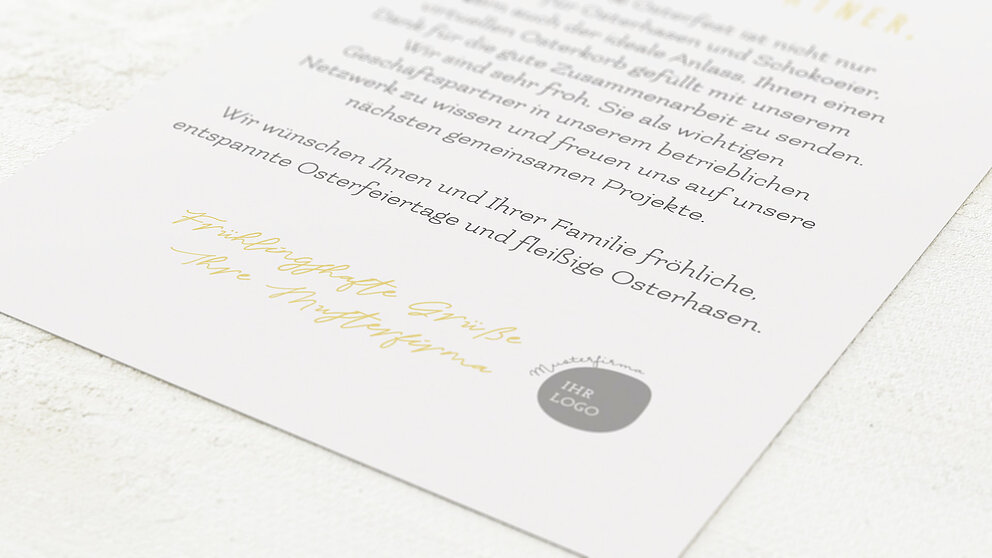 TNER,
Osterfest ist nicht nur
für Osterhasen und Schokoeier,
auch der ideale Anlass, Ihnen einen
virtuellen Osterkorb gefüllt mit unserem
Dank für die gute Zusammenarbeit zu senden.
Wir sind sehr froh, Sie als wichtigen
Geschäftspartner in unserem betrieblichen
Netzwerk zu wissen und freuen uns auf unsere
nächsten gemeinsamen Projekte.
Wir wünschen Ihnen und Ihrer Familie fröhliche,
entspannte Osterfeiertage und fleißige Osterhasen.
Frühlingshafte Grüße
Ihre Musterfirma
Musterfirma
IHR
LOGO